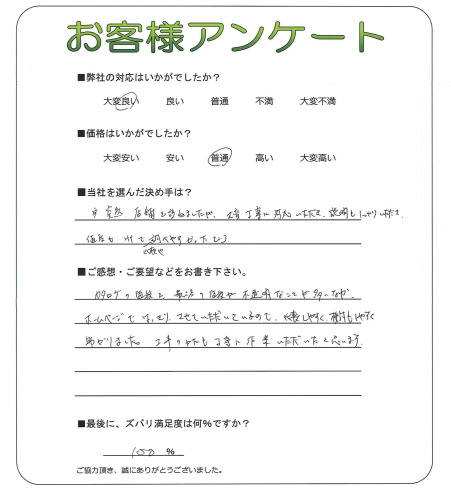 お客様アンケート
■弊社の対応はいかがでしたか？
大変良い 良い 普通 不満 大変不満
■価格はいかがでしたか？
大変安い 安い 普通 高い 大変高い
■当社を選んだ決め手は？
店舗を 丁寧に対応いただき、説明も
価格も
■ご感想・ご要望などをお書き下さい。
カタログの価格と、 の価格が不透明なことが多いなか、
ホームページではっきりさせていただいているので、 しやすく、検討もしやすく
助かりました。工事のかたも丁寧に作業いただいたと思います。
■最後に、ズバリ満足度は何％ですか？
100 ％
ご協力頂き、誠にありがとうございました。